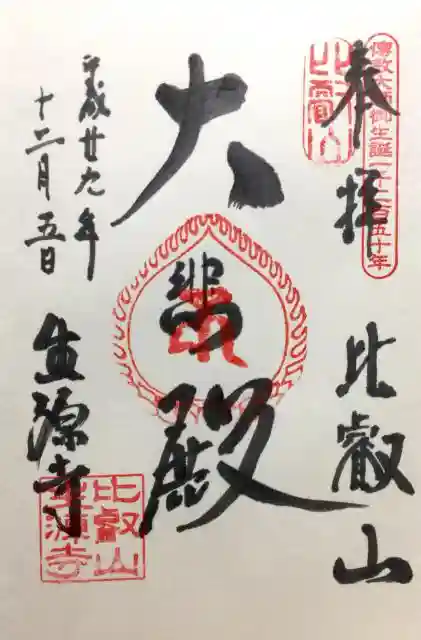 傳教大師御生誕一千二百五十年
比叡山
奉拝
比叡山
大悲殿
平成廿九年
十二月五日
生源寺
比叡山
生源寺